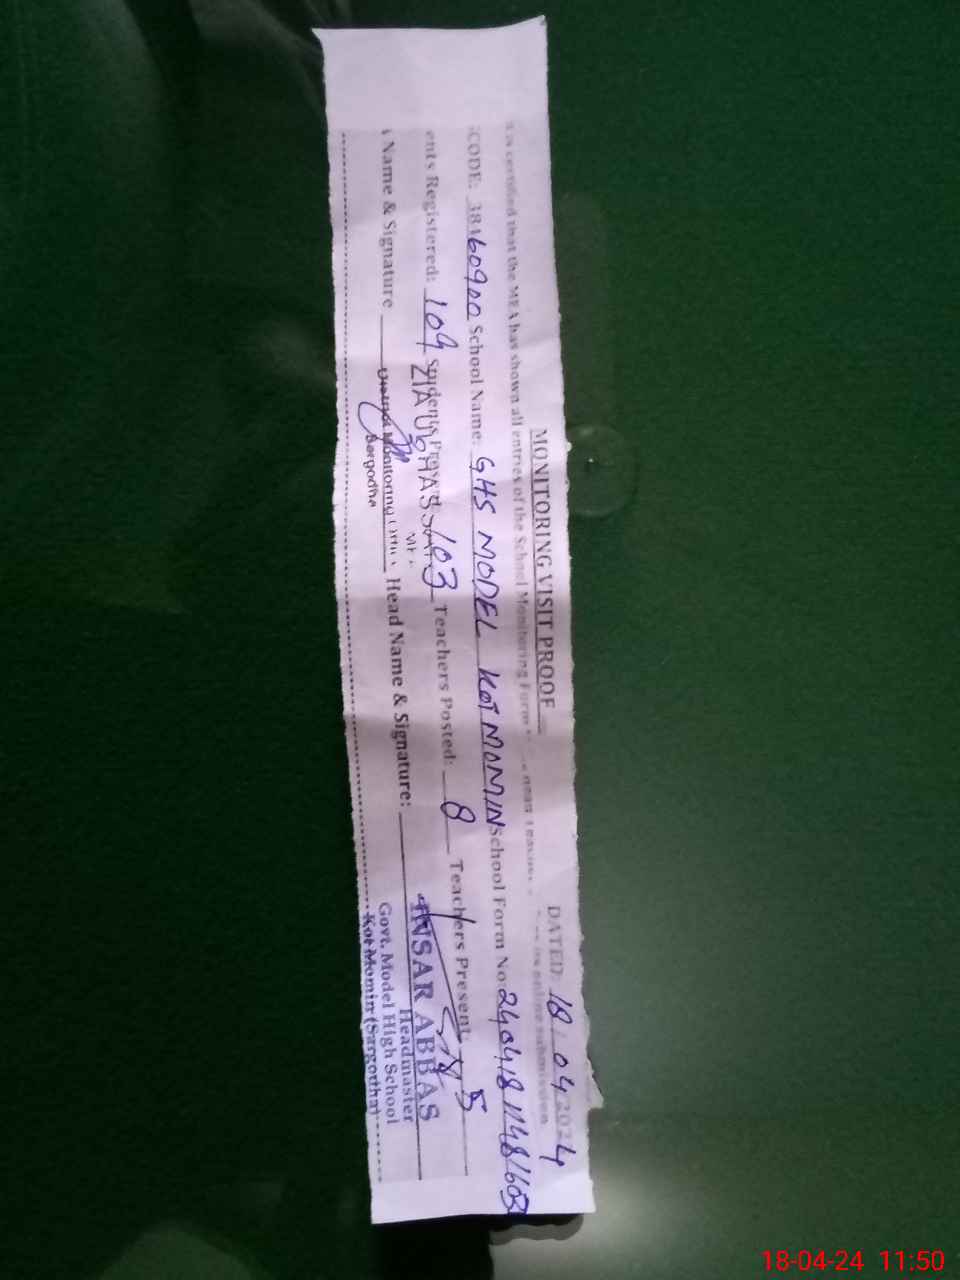 MONITORING VISIT PROOF
DATED: 18/04/2024
It is certified that the MEA has shown all entries of the School Monitoring Form online submission
SCODE: 38160900 School Name: GHS MODEL KOT MOMIN School Form No 24041811481603
ents Registered: 109 Students Present 103 Teachers Posted: 8 Teachers Present: 5
ZIA
MEA
Name & Signature Head Name & Signature:
District Monitoring Office
Sargodha
ANSAR ABBAS
Headmaster
Govt. Model High School
Kot Momin (Sargodha)
18-04-24 11:50